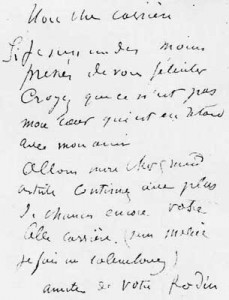 Mon cher Carrière
Si je suis un des moins
pressés de vous féliciter
Croyez que ce n'est pas
mon cœur qui est en retard
avec mon ami
Allons mon cher grand
artiste continuez une plus
de chances encore votre
belle carrière. (sans
je fais un calembour)
amitié de votre Rodin